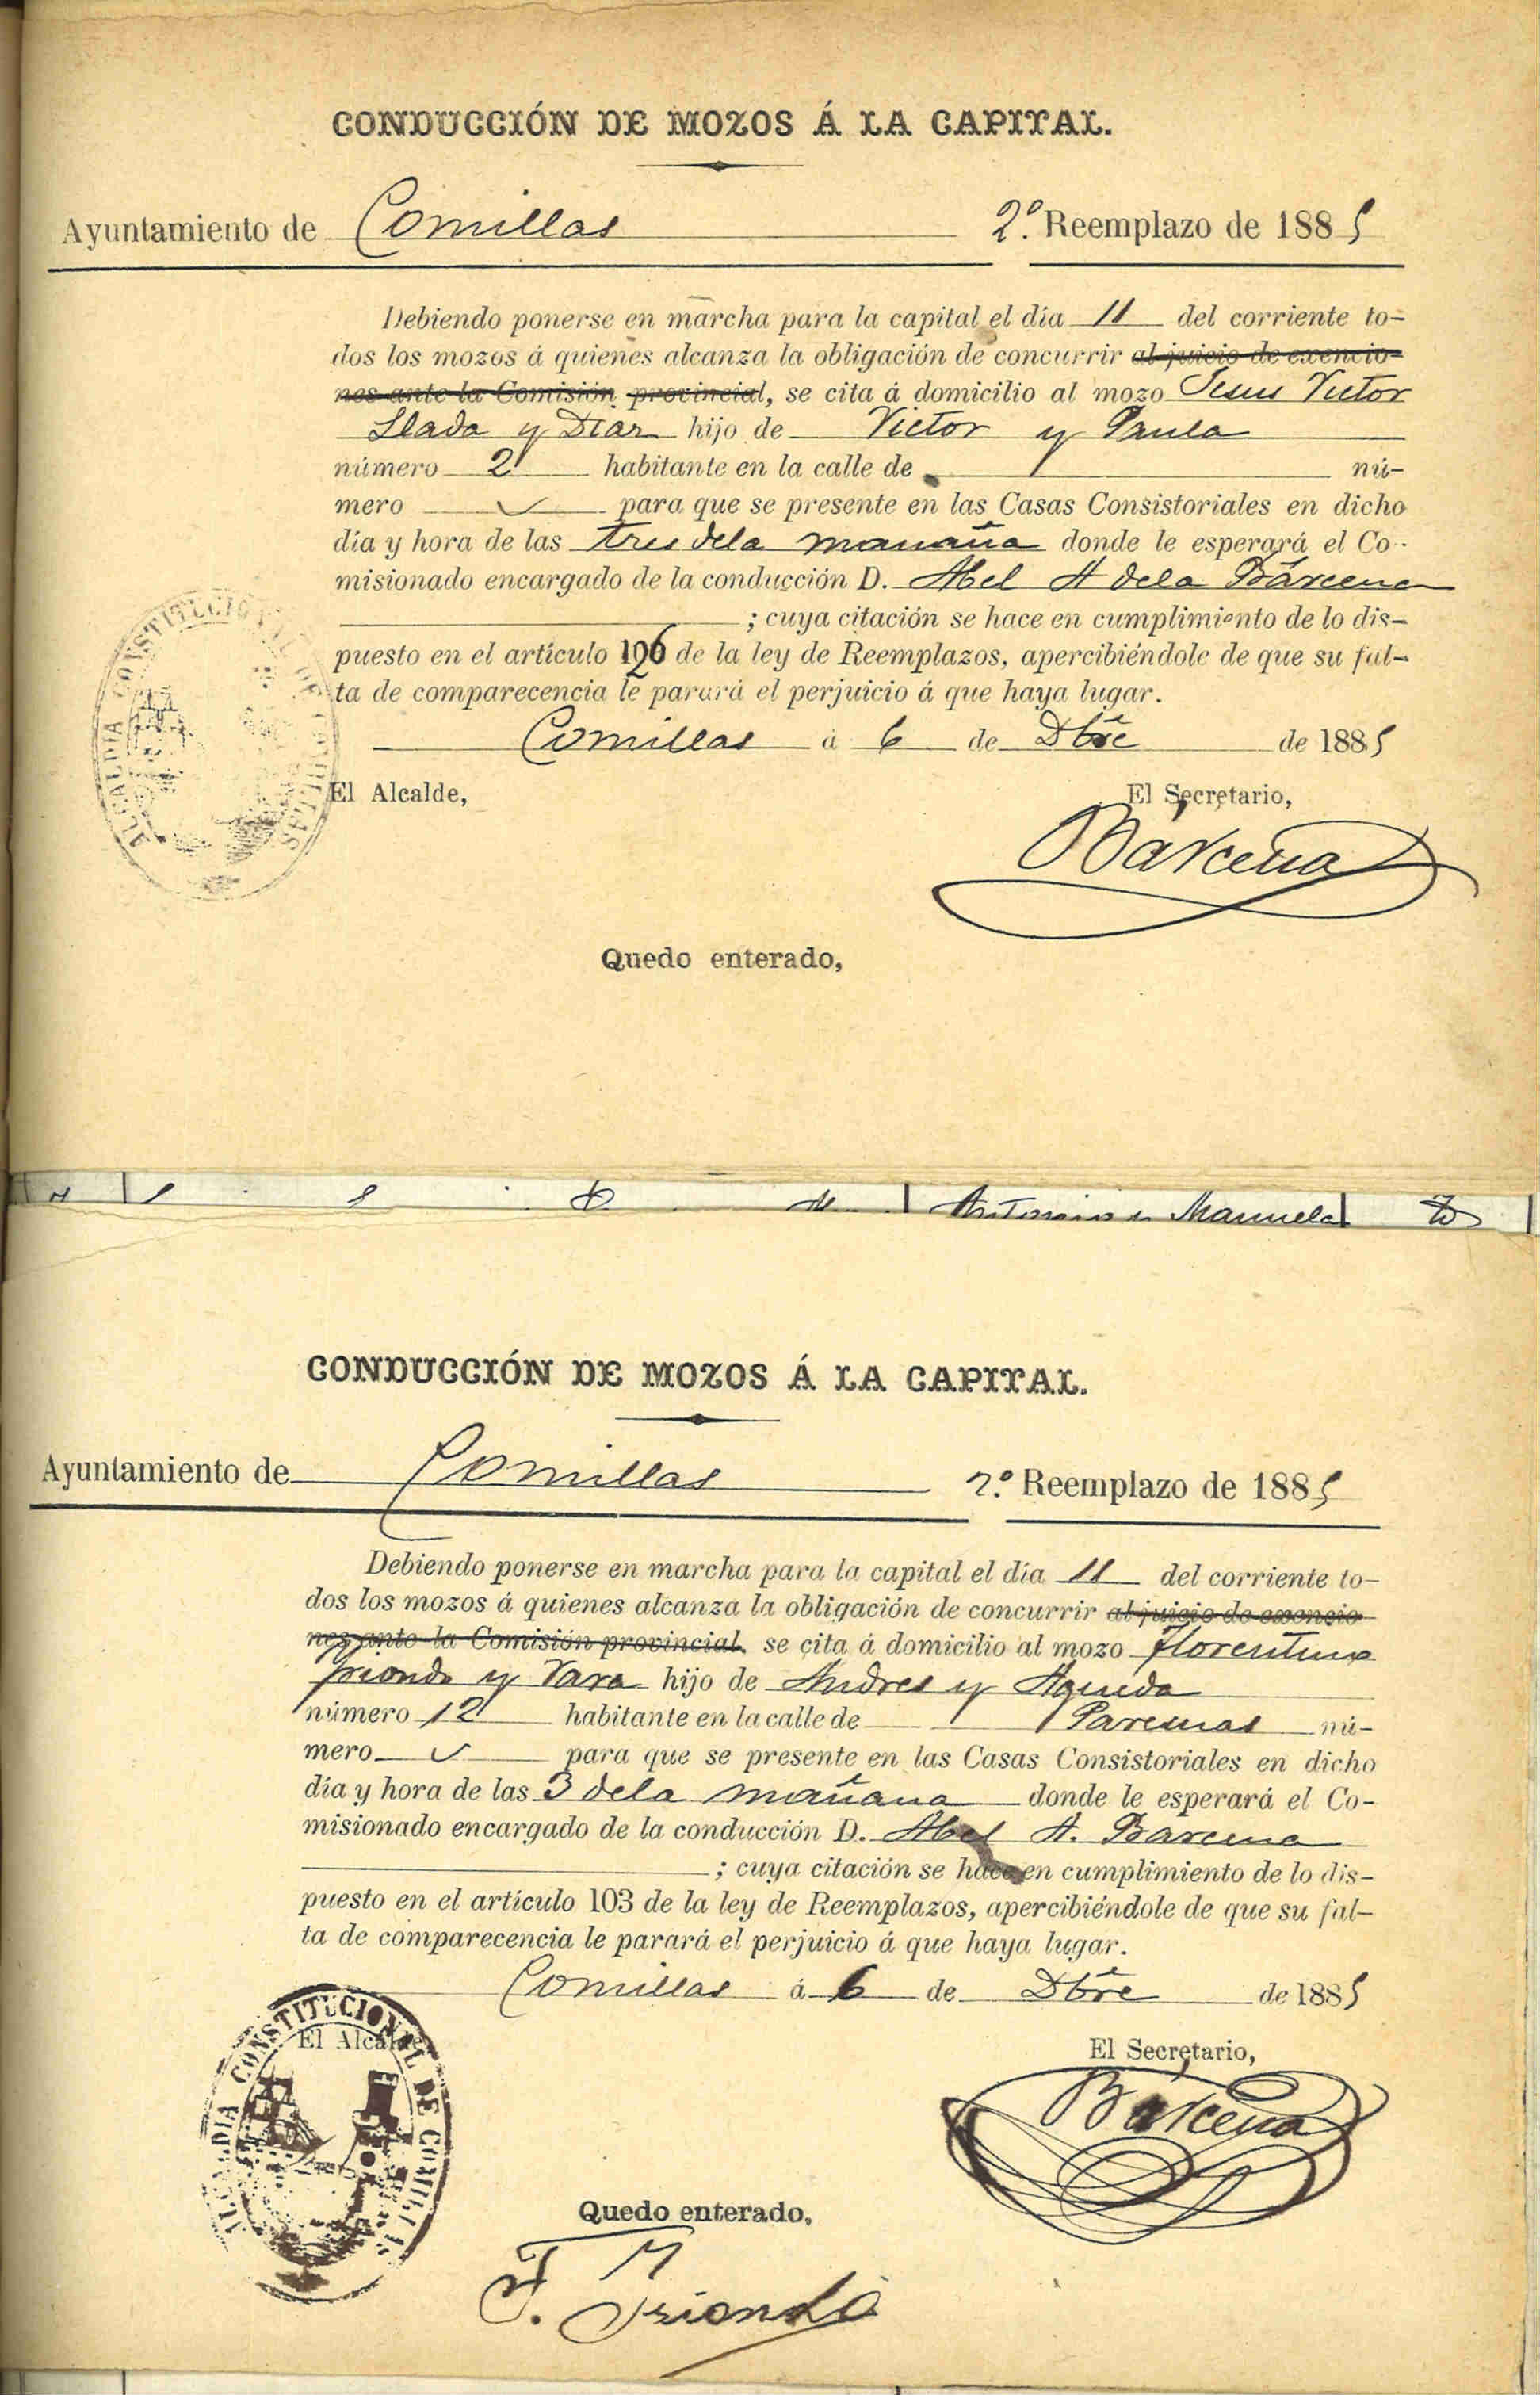 CONDUCCIÓN DE MOZOS Á LA CAPITAL.
Ayuntamiento de Comillas 2º. Reemplazo de 1885
Debiendo ponerse en marcha para la capital el día 11 del corriente to-
dos los mozos á quienes alcanza la obligación de concurrir al juicio de exencio-
nes ante la Comisión provincial, se cita á domicilio al mozo Jesus Victor
Llada y Diaz hijo de Victor y Paula
número 2 habitante en la calle de nú-
mero para que se presente en las Casas Consistoriales en dicho
día y hora de las tres dela mañana donde le esperará el Co-
misionado encargado de la conducción D. Abel A dela Bárcena
; cuya citación se hace en cumplimiento de lo dis-
puesto en el artículo de la ley de Reemplazos, apercibiéndole de que su fal-
ta de comparecencia le parará el perjuicio á que haya lugar.
Comillas á 6 de Dbre de 1885
ALCALDIA CONSTITUCIONAL DE
El Alcalde, El Secretario,
Bárcena
Quedo enterado,
Antonio y Manuela
CONDUCCIÓN DE MOZOS Á LA CAPITAL.
Ayuntamiento de Comillas 2º. Reemplazo de 1885
Debiendo ponerse en marcha para la capital el día 11 del corriente to-
dos los mozos á quienes alcanza la obligación de concurrir al juicio de exencio-
nes ante la Comisión provincial, se cita á domicilio al mozo florentino
Yriondo y Vara hijo de Andres y Agueda
número 12 habitante en la calle de nú-
mero para que se presente en las Casas Consistoriales en dicho
día y hora de las 3 dela mañana donde le esperará el Co-
misionado encargado de la conducción D. Abel A. Barcena
; cuya citación se hace en cumplimiento de lo dis-
puesto en el artículo 103 de la ley de Reemplazos, apercibiéndole de que su fal-
ta de comparecencia le parará el perjuicio á que haya lugar.
Comillas á 6 de Dbre de 1885
ALCALDIA CONSTITUCIONAL DE COMILLAS
El Alcalde El Secretario,
Bárcena
Quedo enterado,
F. Yriondo